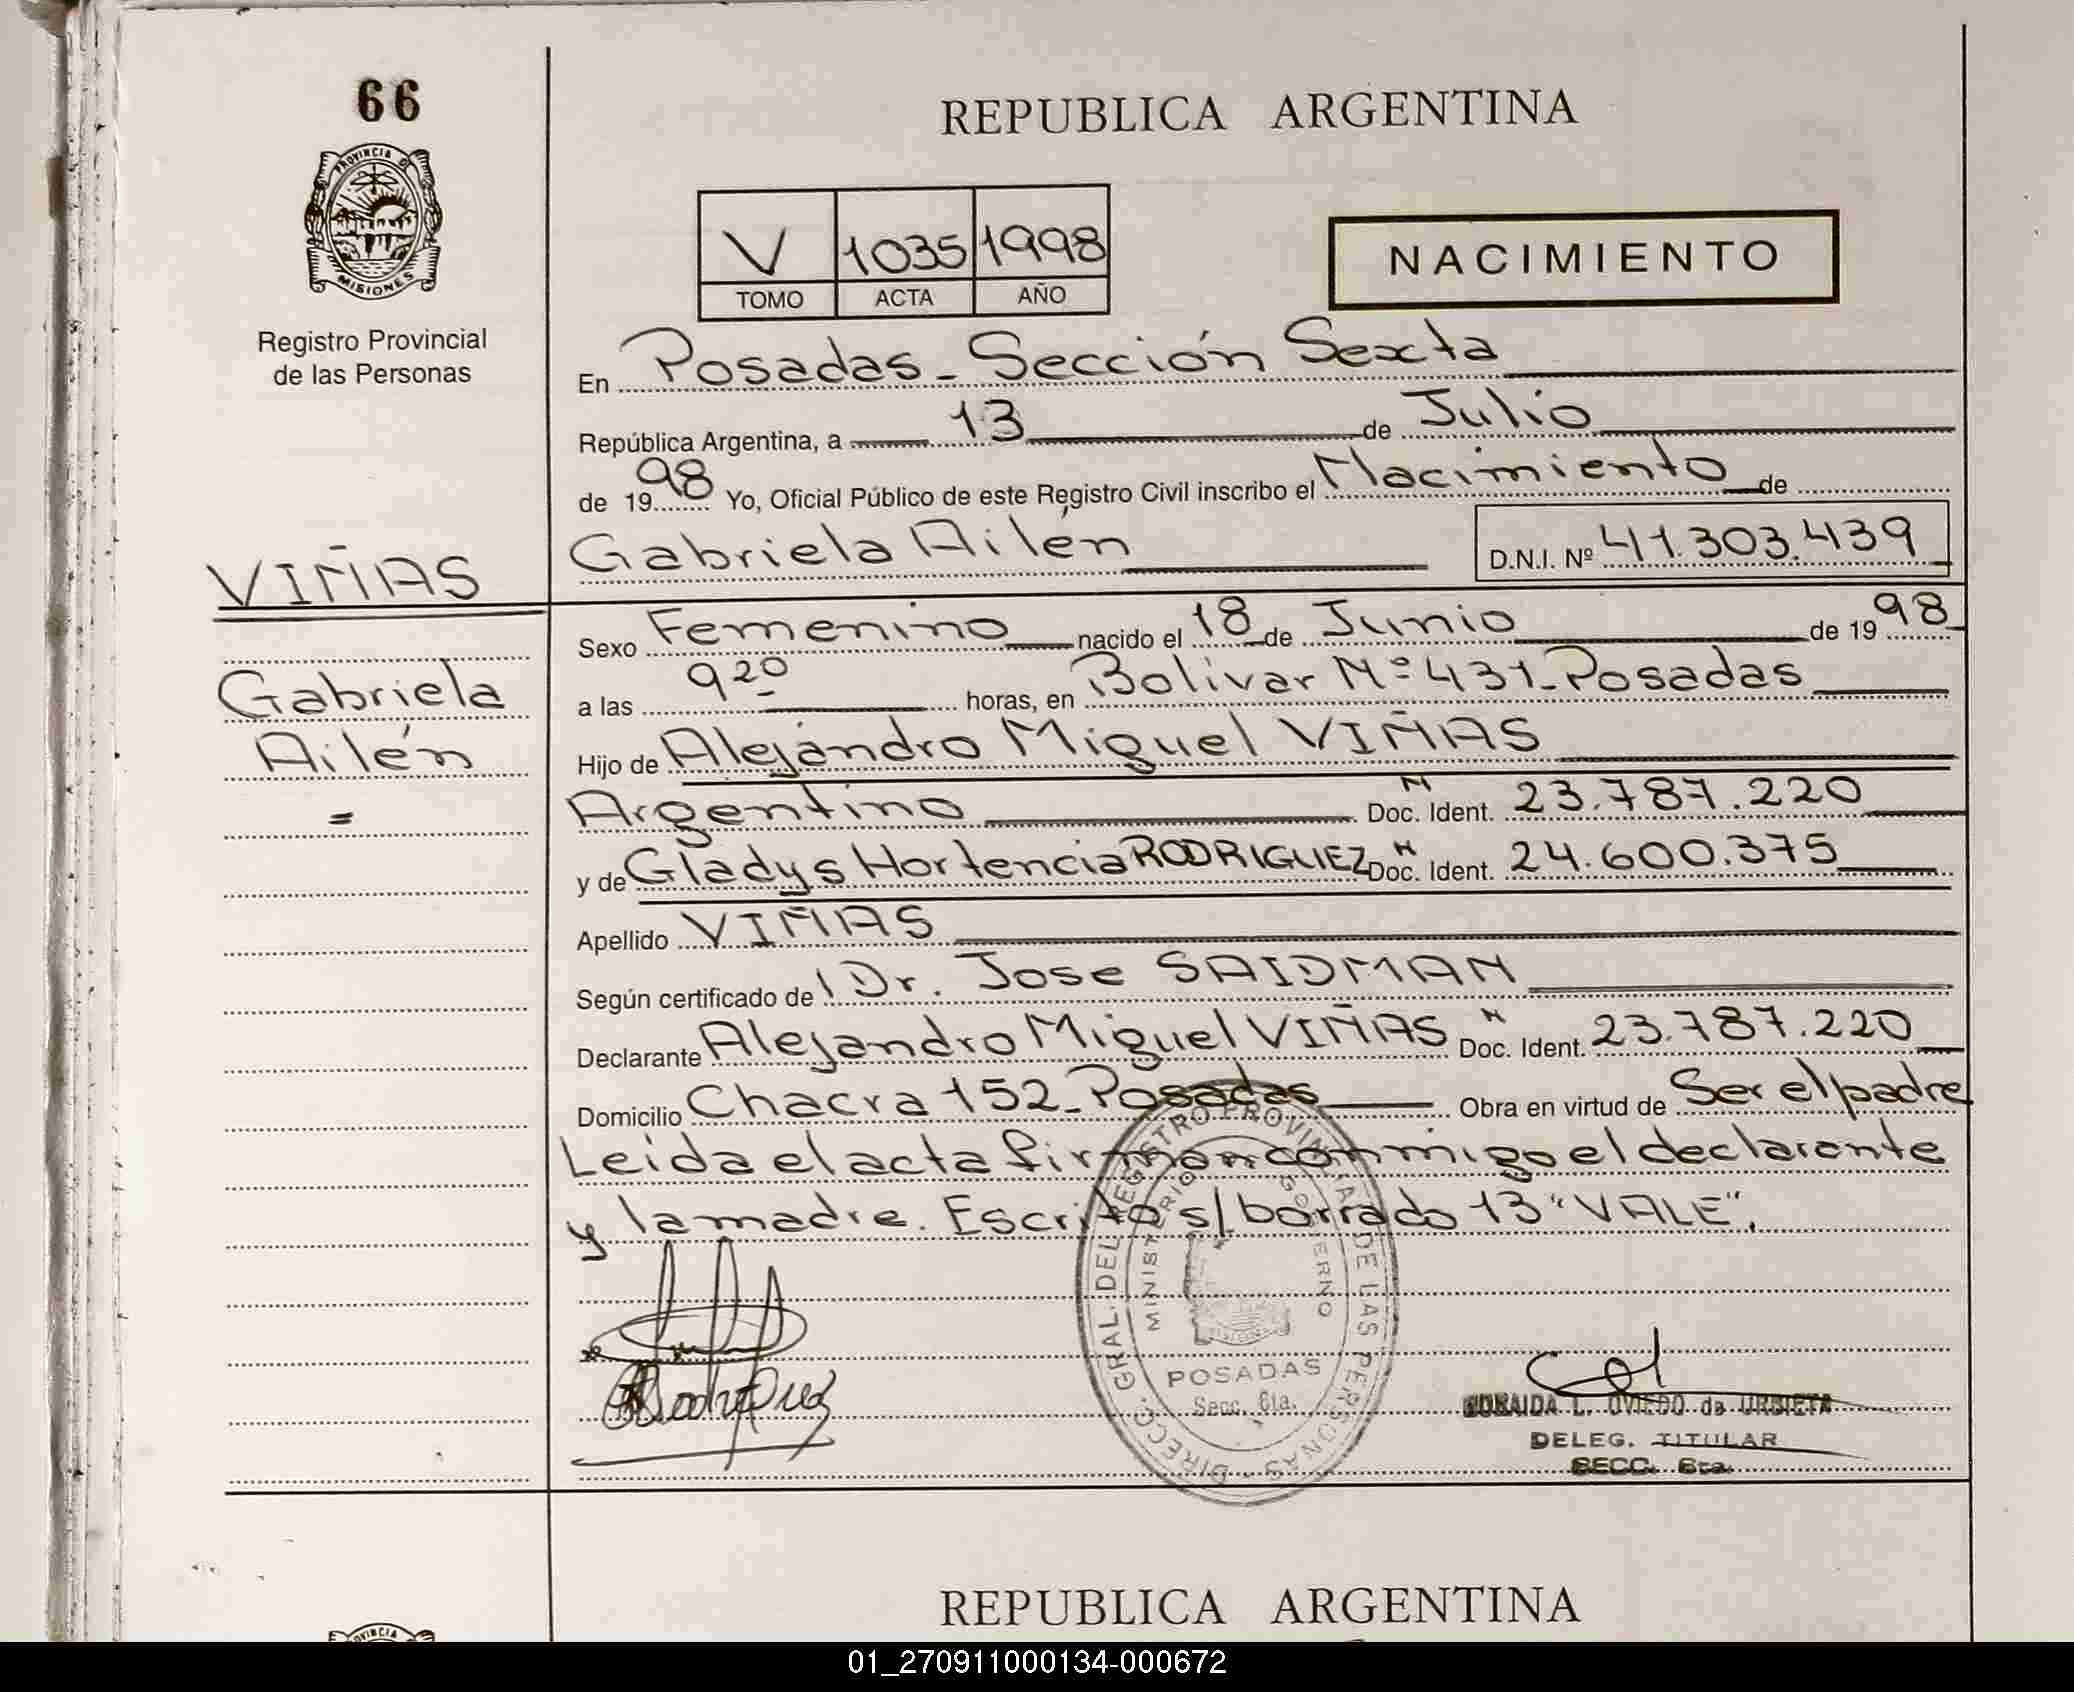 66
REPUBLICA ARGENTINA
PROVINCIA D
MISIONES
Registro Provincial
de las Personas
V 1035 1998
TOMO ACTA AÑO
NACIMIENTO
En Posadas - Sección Sexta
República Argentina, a 13 de Julio
de 1998 Yo, Oficial Público de este Registro Civil inscribo el Nacimiento de
Gabriela Ailén D.N.I. Nº 41.303.439
VIÑAS
Gabriela
Ailén
=
Sexo Femenino nacido el 18 de Junio de 1998
a las 9 20 horas, en Bolivar Nº 431 - Posadas
Hijo de Alejandro Miguel VIÑAS
Argentino N Doc. Ident. 23.787.220
y de Gladys Hortencia RODRIGUEZ N Doc. Ident. 24.600.375
Apellido VIÑAS
Según certificado del Dr. Jose SAIDMAN
Declarante Alejandro Miguel VIÑAS N Doc. Ident. 23.787.220
Domicilio Chacra 152 - Posadas Obra en virtud de Ser el padre
Leida el acta firman conmigo el declarante
y la madre. Escrito s/borrado 13 "VALE".
DIRECC. GRAL. DEL REGISTRO PROVINCIAL DE LAS PERSONAS
MINISTERIO GOBIERNO
POSADAS
Secc. 6ta.
Rodriguez
L. OVIEDO de URBIETA
DELEG. TITULAR
SECC. 6ta.
REPUBLICA ARGENTINA
01_270911000134-000672